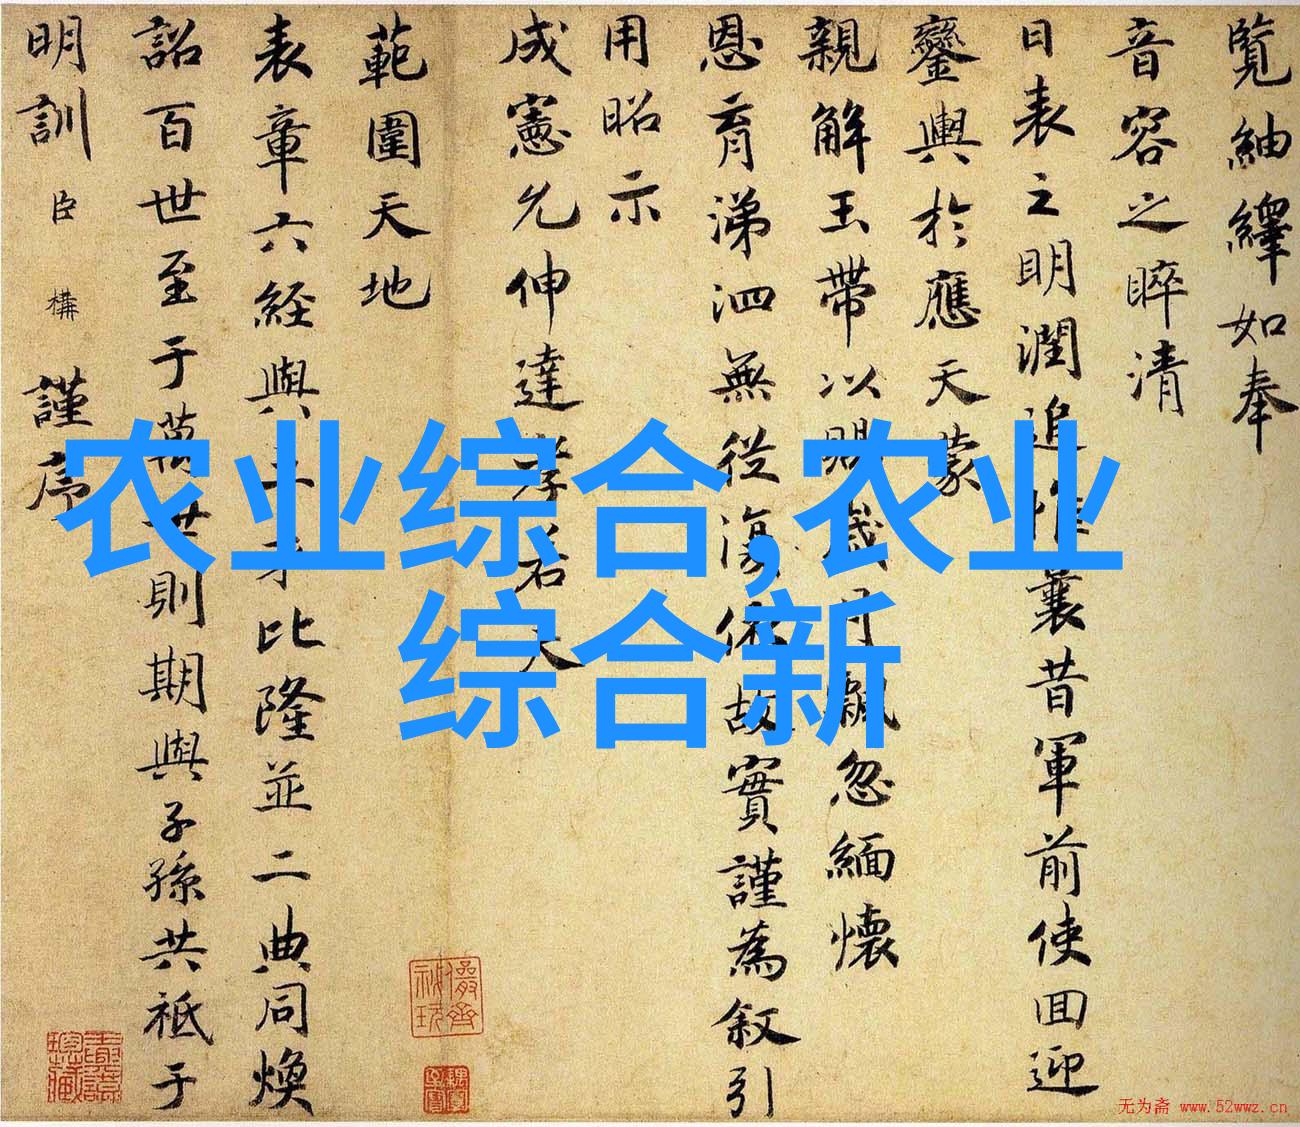 覽紬繹如奉
音容之睟清
日表之明潤追惟曩昔軍前使回迎
鑾輿於應天蒙
親解玉帶以賜歲月飄忽緬懷
恩育涕泗無從復依故實謹為叙引
用昭示
成憲允伸達孝若夫
範圍天地
表章六經與三才比隆並二典同煥
詔百世至于萬世則期與子孫共祗于
明訓臣構謹序
农业综合,农业
综合新
无为斋 www.52wwz.cn